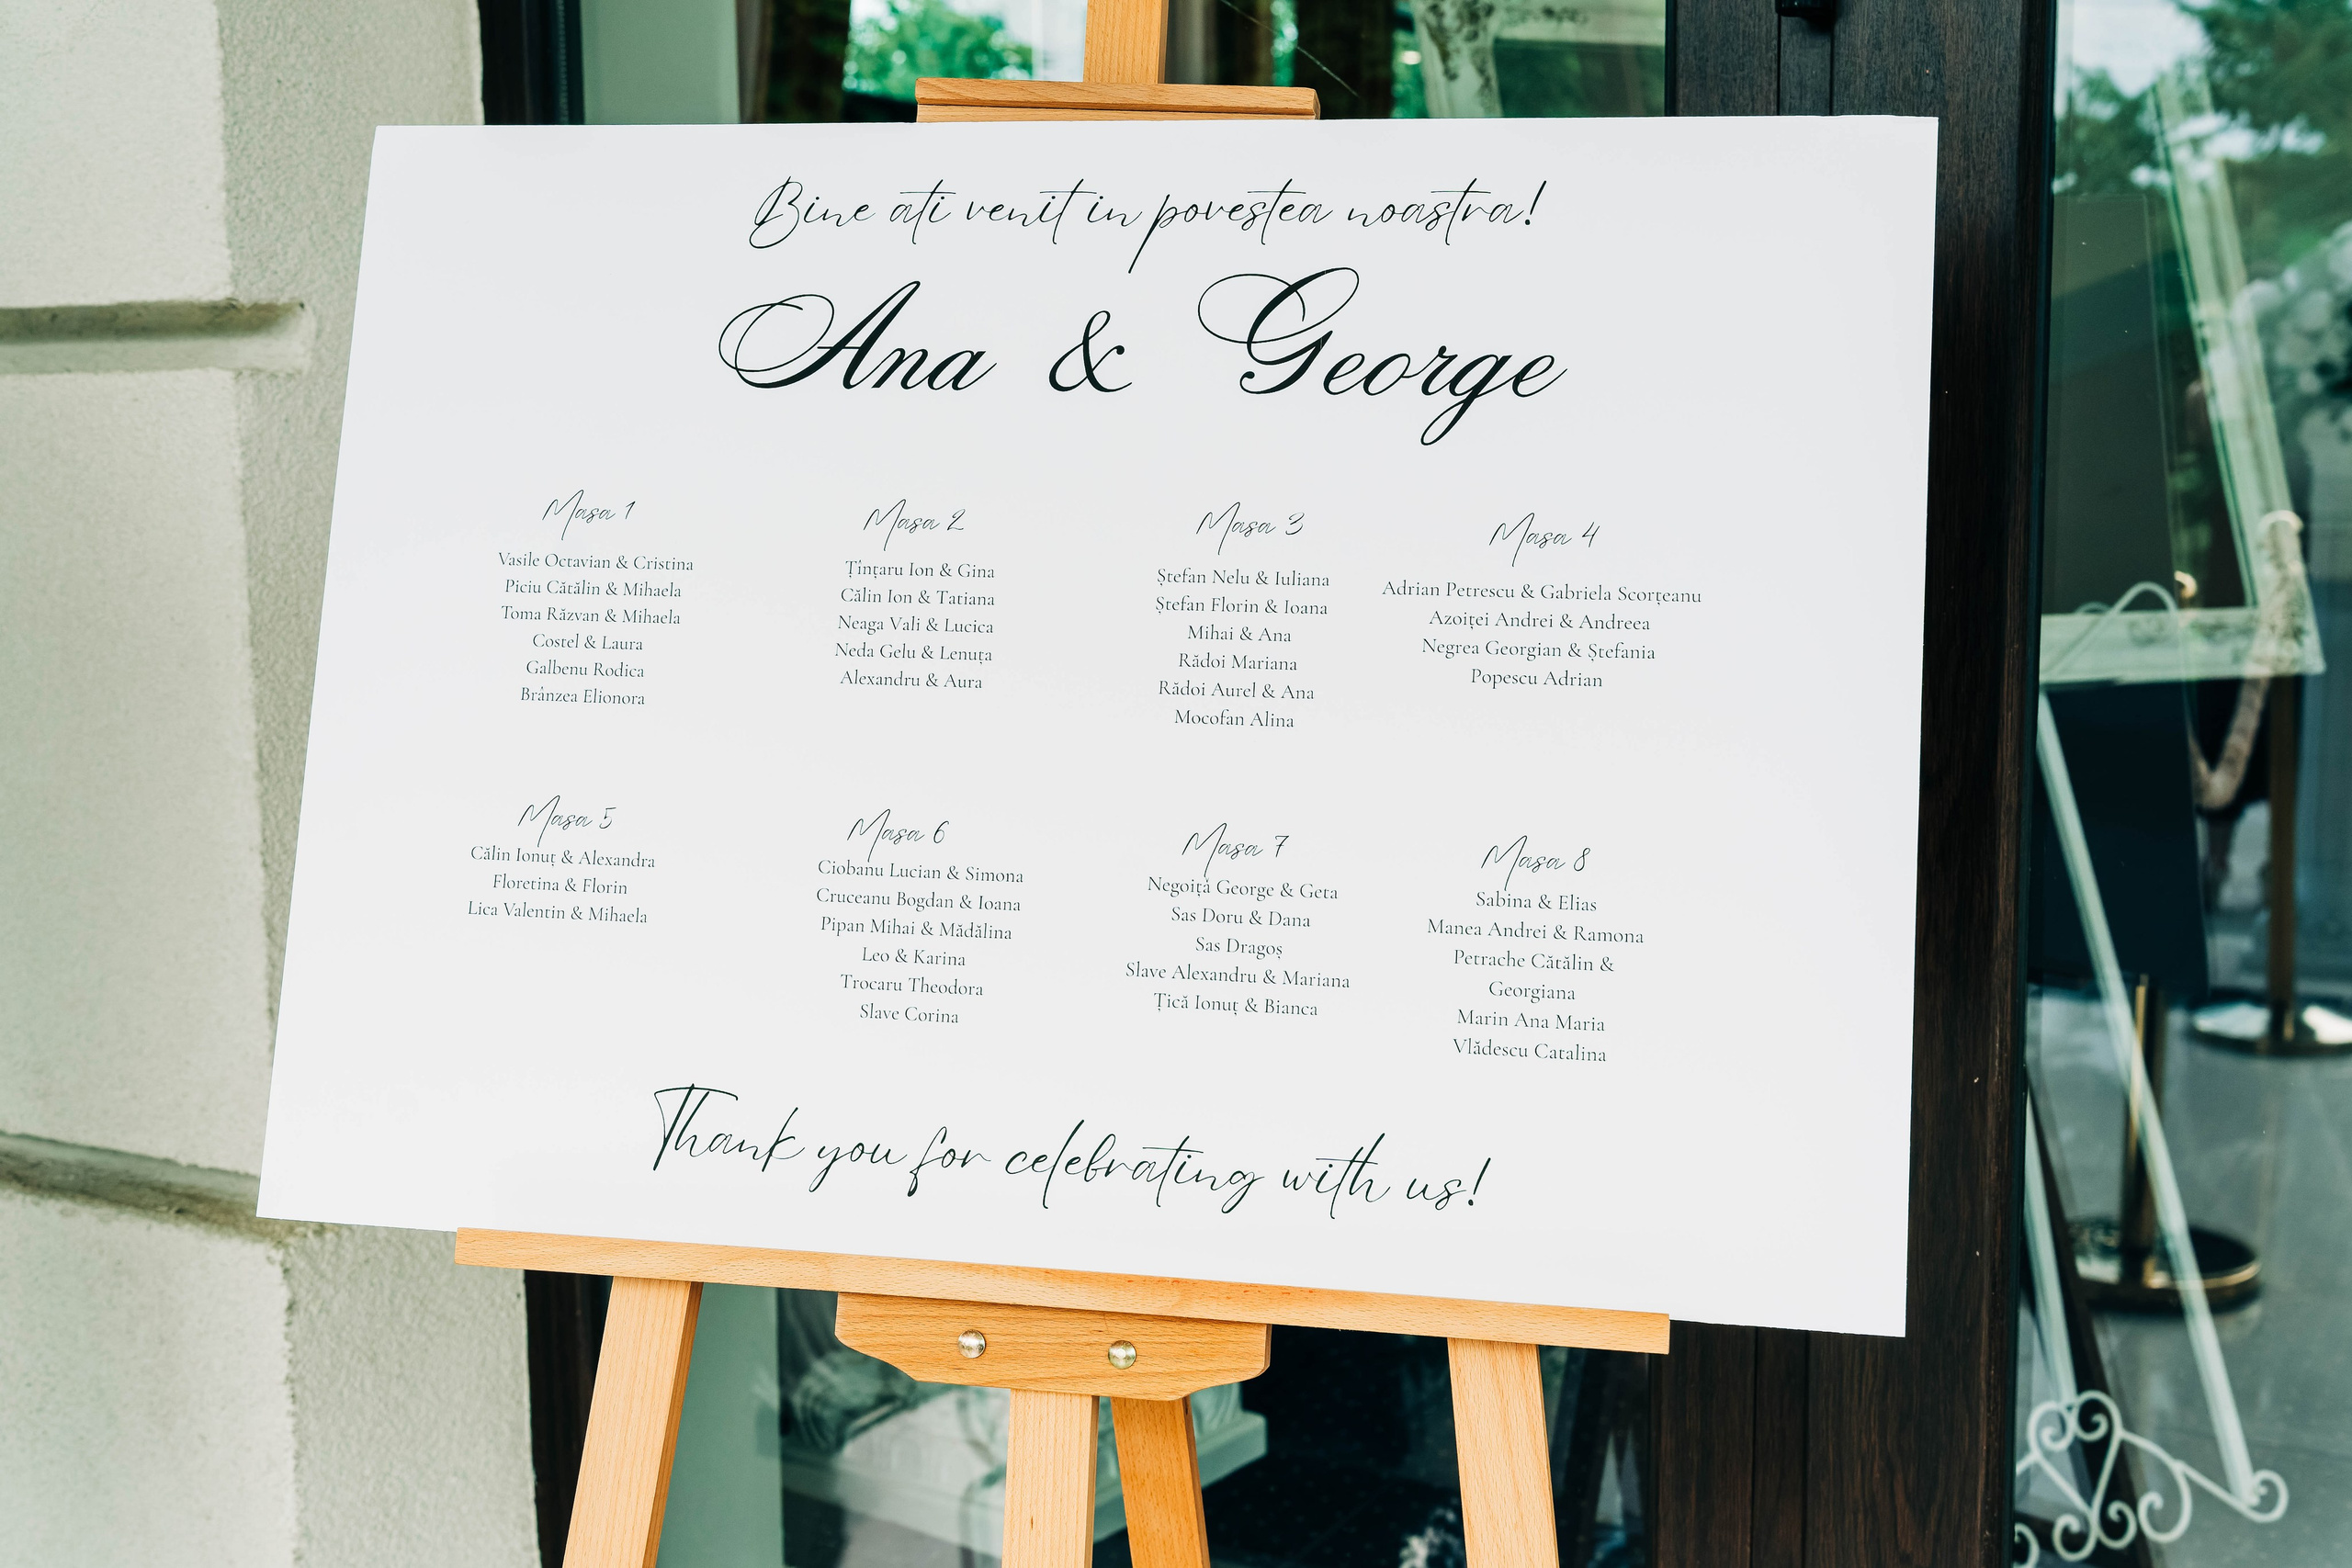 Bine ati venit in povestea noastra!
Ana & George
Masa 1
Vasile Octavian & Cristina
Piciu Cătălin & Mihaela
Toma Răzvan & Mihaela
Costel & Laura
Galbenu Rodica
Brânzea Elionora
Masa 2
Țînțaru Ion & Gina
Călin Ion & Tatiana
Neaga Vali & Lucica
Neda Gelu & Lenuța
Alexandru & Aura
Masa 3
Ștefan Nelu & Iuliana
Ștefan Florin & Ioana
Mihai & Ana
Rădoi Mariana
Rădoi Aurel & Ana
Mocofan Alina
Masa 4
Adrian Petrescu & Gabriela Scorțeanu
Azoiței Andrei & Andreea
Negrea Georgian & Ștefania
Popescu Adrian
Masa 5
Călin Ionuț & Alexandra
Floretina & Florin
Lica Valentin & Mihaela
Masa 6
Ciobanu Lucian & Simona
Cruceanu Bogdan & Ioana
Pipan Mihai & Mădălina
Leo & Karina
Trocaru Theodora
Slave Corina
Masa 7
Negoiță George & Geta
Sas Doru & Dana
Sas Dragoș
Slave Alexandru & Mariana
Țică Ionuț & Bianca
Masa 8
Sabina & Elias
Manea Andrei & Ramona
Petrache Cătălin &
Georgiana
Marin Ana Maria
Vlădescu Catalina
Thank you for celebrating with us!